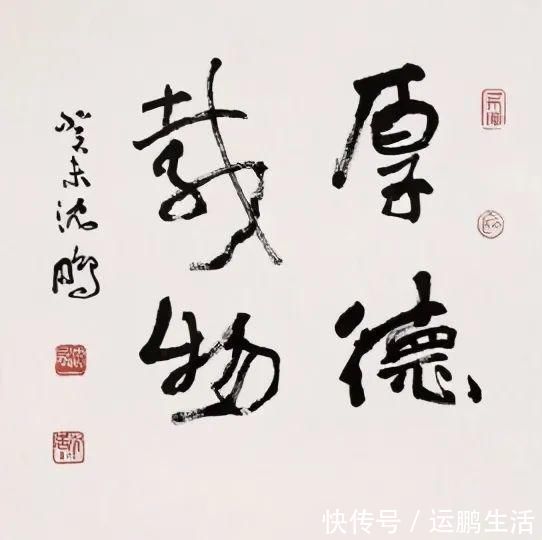 厚德
载物
癸未沈鹏
快传号／运鹏生活